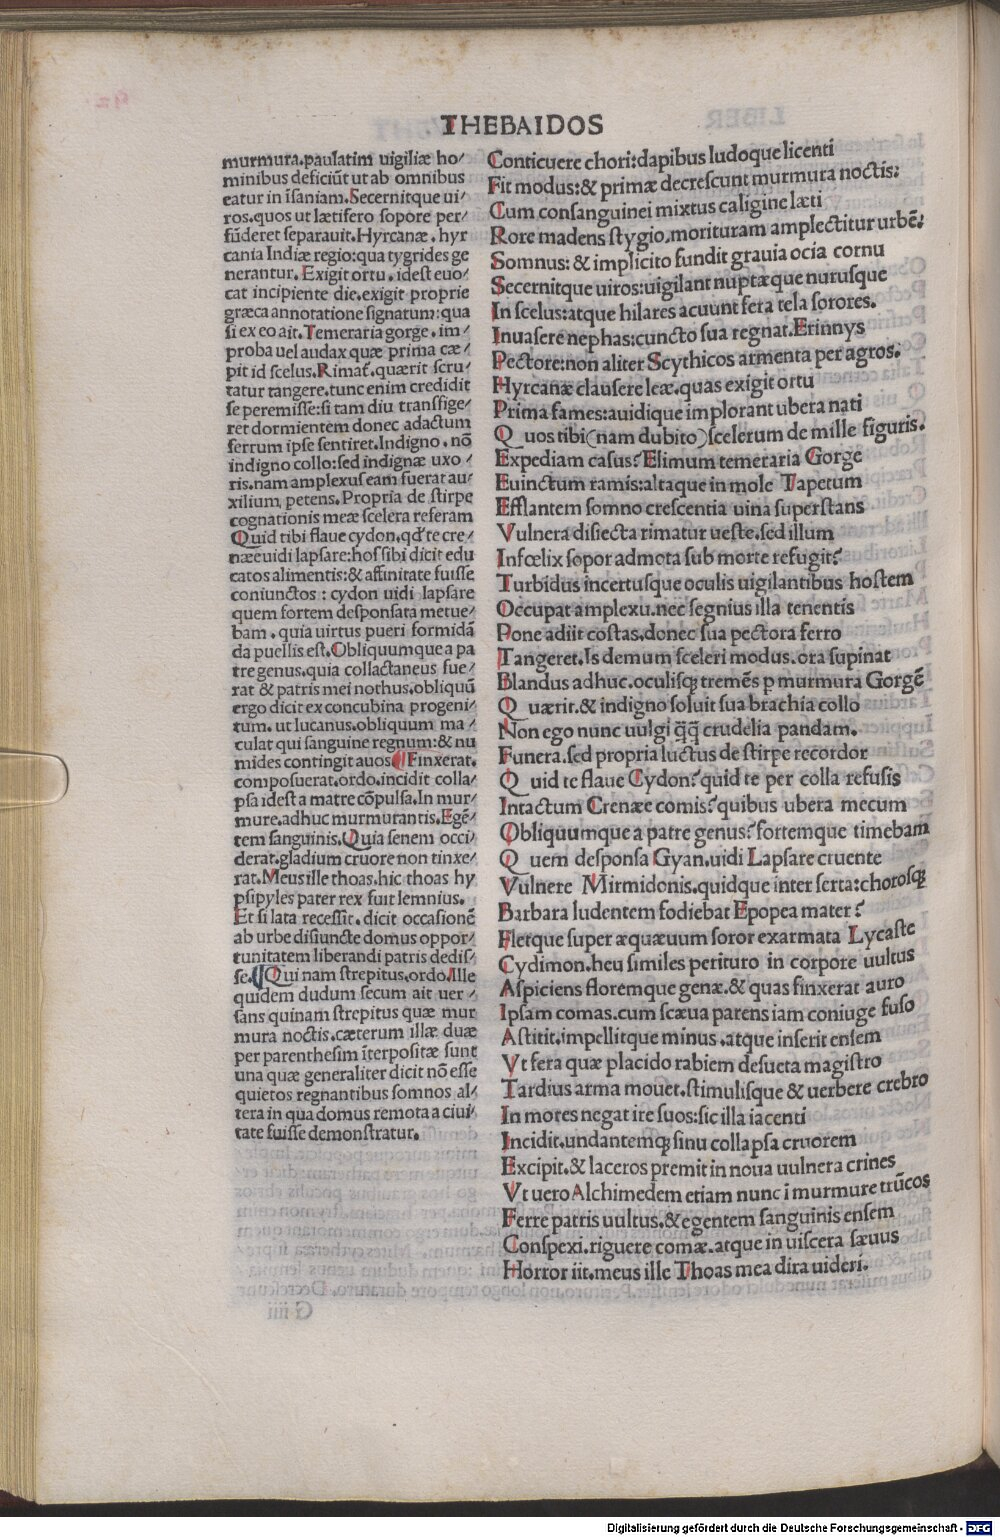 THEBAIDOS
murmura.paulatim uigiliæ ho/
minibus deficiũt ut ab omnibus
eatur in ĩsaniam.Secernitque ui/
ros.quos ut lætifero sopore per/
fũderet separauit.Hyrcanæ.hyr
cania Indiæ regio:qua tygrides ge
nerantur. Exigit ortu.idest euo/
cat incipiente die.exigit proprie
græca annotatione signatum:qua
si ex eo ait.Temeraria gorge.im/
proba uel audax quæ prima cæ/
pit id scelus.Rimat̃.quærit scru/
tatur tangere.tunc enim credidit
se peremisse:si tam diu transfige/
ret dormientem donec adactum
ferrum ipse sentiret.Indigno.nõ
indigno collo:sed indignæ uxo/
ris.nam amplexus eam fuerat au/
xilium petens.Propria de stirpe
cognationis meæ scelera referam
Quid tibi flaue cydon.qđ te cre/
næe uidi lapsare:hos sibi dicit edu
catos alimentis:& affinitate fuisse
coniunctos: cydon uidi lapsare
quem fortem desponsata metue/
bam.quia uirtus pueri formidã
da puellis est.Obliquumque a pa
tre genus.quia collactaneus fue/
rat & patris mei nothus.obliquũ
ergo dicit ex concubina progeni/
tum.ut lucanus.obliquum ma/
culat qui sanguine regnum:& nu
mides contingit auos ¶Finxerat.
composuerat.ordo.incidit colla/
psa idest a matre cõpulsa.In mur/
mure.adhuc murmurantis.Egẽ/
tem sanguinis.Quia senem occi/
derat.gladium cruore non tinxe/
rat.Meus ille thoas.hic thoas hy
psipyles pater rex fuit lemnius.
Et si lata recessit.dicit occasionẽ
ab urbe disiuncte domus oppor/
tunitatem liberandi patris dedis/
se.¶Qui nam strepitus.ordo.Ille
quidem dudum secum ait uer/
sans quinam strepitus quæ mur
mura noctis.cæterum illæ duæ
per parenthesim ĩterpositæ sunt
una quæ generaliter dicit nõ esse
quietos regnantibus somnos al/
tera in qua domus remota a ciui/
tate fuisse demonstratur.
Conticuere chori:dapibus ludoque licenti
Fit modus:& primæ decrescunt murmura noctis:
Cum consanguinei mixtus caligine læti
Rore madens stygio.morituram amplectitur urbẽ:
Somnus:& implicito fundit grauia ocia cornu
Secernitque uiros:uigilant nuptæque nurusque
In scelus:atque hilares acuunt fera tela sorores.
Inuasere nephas:cuncto sua regnat.Erinnys
Pectore:non aliter Scythicos armenta per agros.
Hyrcanæ clausere leæ.quas exigit ortu
Prima fames:auidique implorant ubera nati
Quos tibi(nam dubito)scelerum de mille figuris.
Expediam casus? Elimum temeraria Gorge
Euinctum ramis:altaque in mole Tapetum
Efflantem somno crescentia uina superstans
Vulnera disiecta rimatur ueste.sed illum
Infœlix sopor admota sub morte refugit?
Turbidus incertusque oculis uigilantibus hostem
Occupat amplexu.nec segnius illa tenentis
Pone adiit costas.donec sua pectora ferro
Tangeret.Is demum sceleri modus.ora supinat
Blandus adhuc.oculisq; tremẽs p murmura Gorgẽ
Quærit.& indigno soluit sua brachia collo
Non ego nunc uulgi q̃q̃ crudelia pandam.
Funera.sed propria luctus de stirpe recordor
Quid te flaue Cydon?quid te per colla refusis
Intactum Crenæe comis?quibus ubera mecum
Obliquumque a patre genus?fortemque timebam
Quem desponsa Gyan.uidi Lapsare cruente
Vulnere Mirmidonis.quidque inter serta:chorosq;
Barbara ludentem fodiebat Epopea mater?
Fletque super æquæuum soror exarmata Lycaste
Cydimon.heu similes perituro in corpore uultus
Aspiciens floremque genæ.& quas finxerat auro
Ipsam comas.cum scæua parens iam coniuge fuso
Astitit.impellitque minus.atque inserit ensem
Vt fera quæ placido rabiem desueta magistro
Tardius arma mouet.stimulisque & uerbere crebro
In mores negat ire suos:sic illa iacenti
Incidit.undantemq; sinu collapsa cruorem
Excipit.& laceros premit in noua uulnera crines
Vt uero Alchimedem etiam nunc ĩ murmure trũcos
Ferre patris uultus.& egentem sanguinis ensem
Conspexi.riguere comæ.atque in uiscera sæuus
Horror iit.meus ille Thoas mea dira uideri.
Digitalisierung gefördert durch die Deutsche Forschungsgemeinschaft - DFG